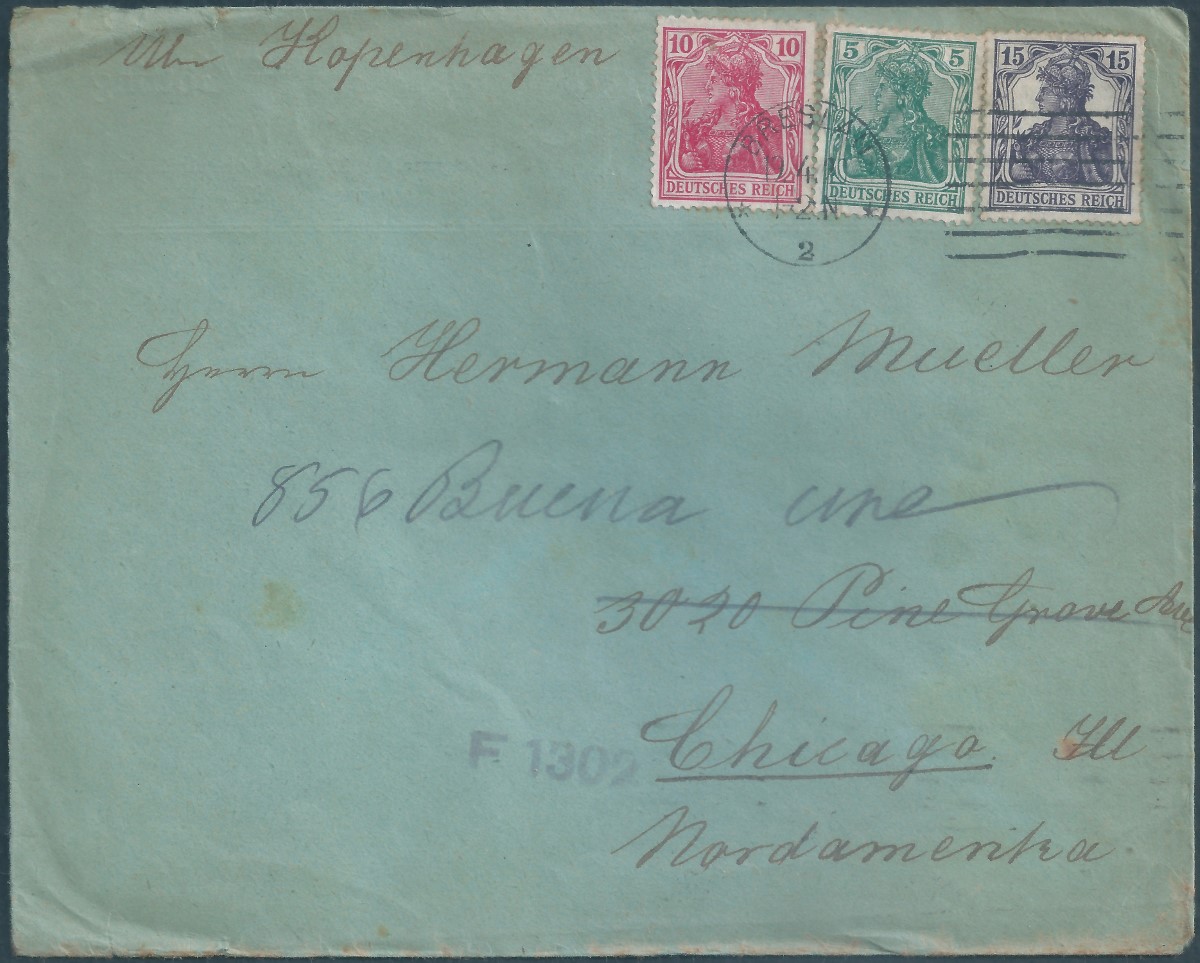 Über Kopenhagen
10 10
DEUTSCHES REICH
5 5
DEUTSCHES REICH
15 15
DEUTSCHES REICH
BRESLAU
2
Herrn Hermann Mueller
856 Buena ave
3020 Pine Grove Ave
Chicago Ill
F 1302
Nordamerika